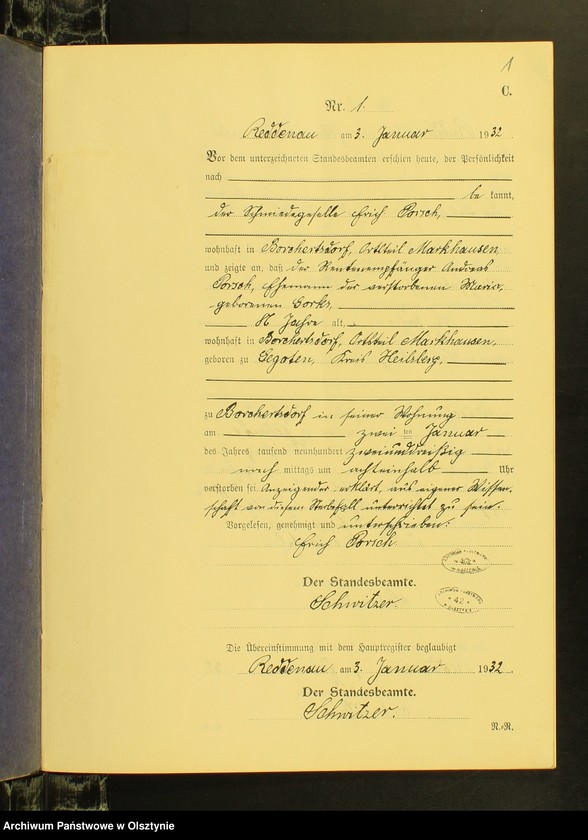 1
C.
Nr. 1.
Reddenau am 3. Januar 1932
Vor dem unterzeichneten Standesbeamten erschien heute, der Persönlichkeit
nach
be kannt,
der Schmiedegeselle Erich Porsch,
wohnhaft in Borchertsdorf, Ortsteil Markhausen
und zeigte an, daß der Rentenempfänger Andreas
Porsch, Ehemann der verstorbenen Maria,
geborenen Gorks,
Jahre alt,
wohnhaft in Borchertsdorf, Ortsteil Markhausen,
geboren zu Gegoten, Kreis Heilsberg,
zu Borchertsdorf in seiner Wohnung
am zwei ten Januar
des Jahres tausend neunhundert zweiunddreißig
nach mittags um achteinhalb Uhr
verstorben sei. Anzeigender erklärt, aus eigener Wissen-
schaft von diesem Sterbefall unterrichtet zu sein.
Vorgelesen, genehmigt und unterschrieben:
Erich Porsch.
Der Standesbeamte.
Schwitzer.
42
42
Die Übereinstimmung mit dem Hauptregister beglaubigt
Reddenau am 3. Januar 1932.
Der Standesbeamte.
Schwitzer.
N.-R.
Archiwum Państwowe w Olsztynie